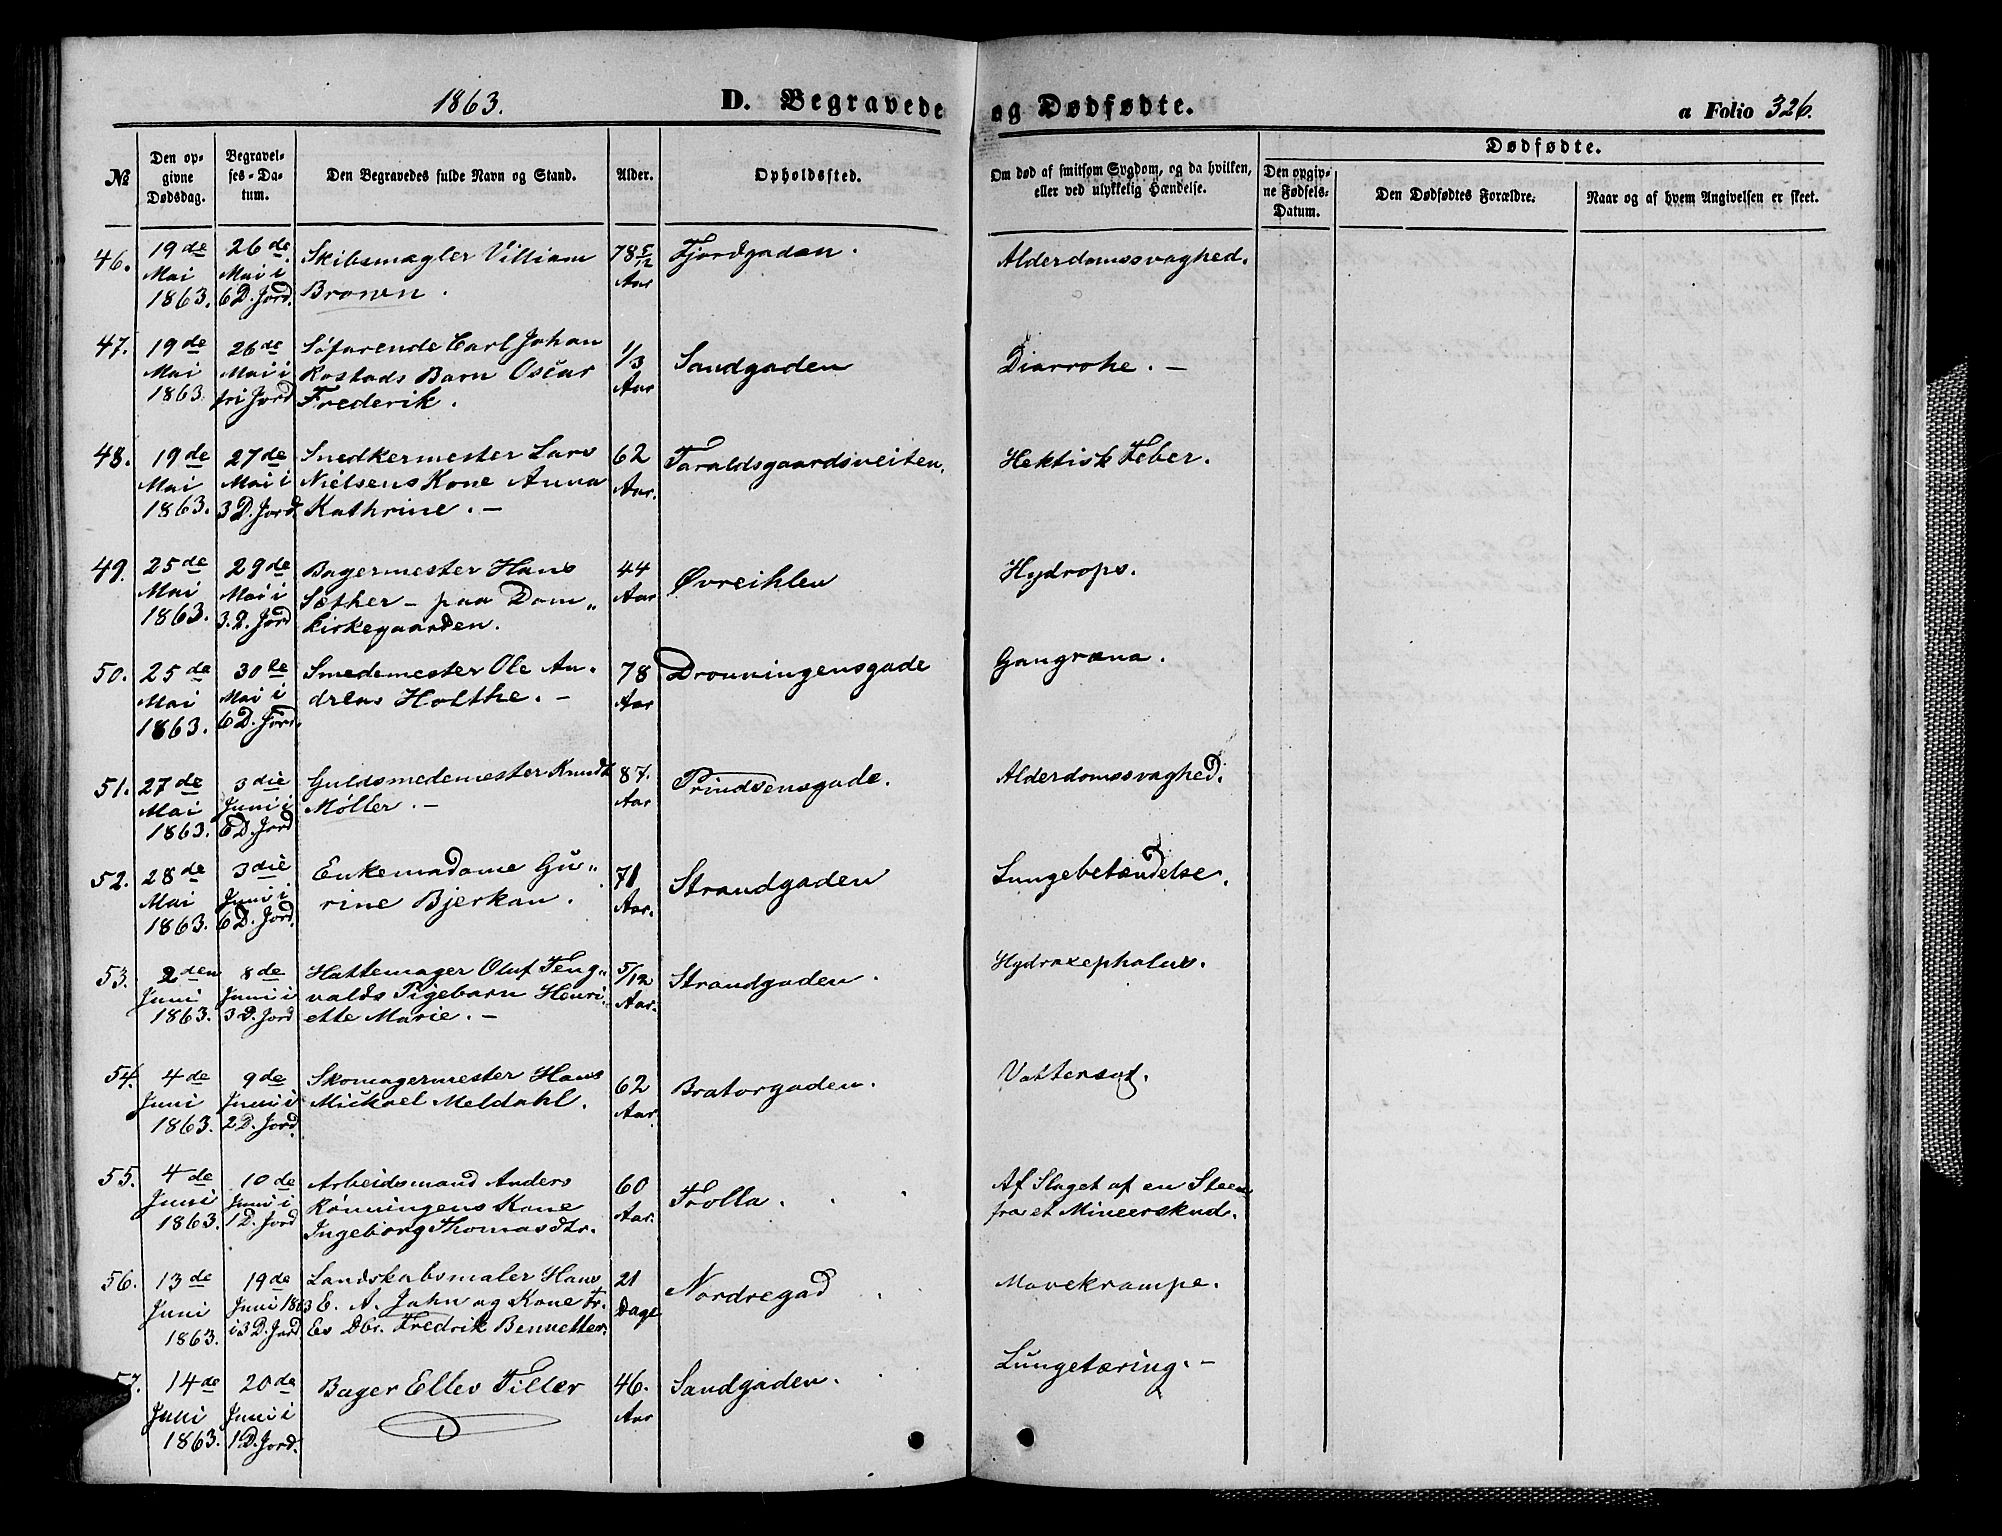 1863. D. Begravede og Dødfødte. a Folio 326.
Dødfødte.
№ Den opgivne Dødsdag. Begravelses-Datum. Den Begravedes fulde Navn og Stand. Alder. Opholdssted. Om død af smitsom Sygdom, og da hvilken, eller ved ulykkelig Hændelse. Den opgivne Fødsels-Datum. Den Dødfødtes Forældre. Naar og af hvem Angivelsen er skeet.
46. 19de 26de Skibsmægler Villiam 78 5/12 Fjordgaden. Alderdomssvaghed.
Mai Mai i Aar
1863. 6 D. Jord. Bronen.
47. 19de 26de Søfarende Carl Johan 1/3 Sandgaden Diarrohe. –
Mai Mai i Rostads Barn Oscar Aar
1863 fri Jord Frederik.
48. 19de 27de Snedkermester Lars 62 Taraldsgaardsveiten. Hektisk Feber.
Mai Mai i Nielsens Kone Anna Aar.
1863. 3 D. Jord. Kathrine. –
49. 25de 29de Bagermester Hans 44 Øvreihlen Hydrops.
Mai Mai i Sæther – paa Dom„ Aar
1863. 3. D. Jord kirkegaarden.
50. 25de 30te Smedemester Ole An- 78 Dronningensgade Gangræna.
Mai Mai i dreas Holthe. – Aar
1863. 6 D. Jord.
51. 27de 3die Guldsmedemester Knudt 87. Prindsensgade. Alderdomssvaghed.
Mai Juni i Møller. – Aar
1863. 6 D. Jord
52. 28de 3die Enkemadame Gu„ 71 Strandgaden Lungebetændelse.
Mai Juni i rine Bjerkan. Aar.
1863. 6 D. Jord.
53. 2den 8de Hattemager Oluf Teng„ 5/12 Strandgaden. Hydrocephalus.
Juni Juni i valds Pigebarn Henri- Aar.
1863. 3 D. Jord ette Marie. –
54. 4de 9de Skomagermester Hans 62 Bratorgaden. Vattersot.
Juni Juni i Mickael Meldahl. Aar.
1863. 2 D. Jord.
55. 4de 10de Arbeidsmand Anders 60 Trolla. Af Slaget af en Steen
Juni Juni i Rønningens Kone Aar. fra et Mineerskud.
1863. 1 D. Jord Ingeborg Thomasdtr.
56. 13de 19de Landskabsmaler Hans 21 Nordregad Mavekrampe.
Juni Juni 1863 E. A. Jahn og Kone Fr. Dage
1863. i 3 D. Jord. Ev Dbr. Fredrik Bennetter.
57. 14de 20de Bager Ellev Tiller 46. Sandgaden. Lungetæring. –
Juni Juni i Aar
1863. 1 D. Jord.